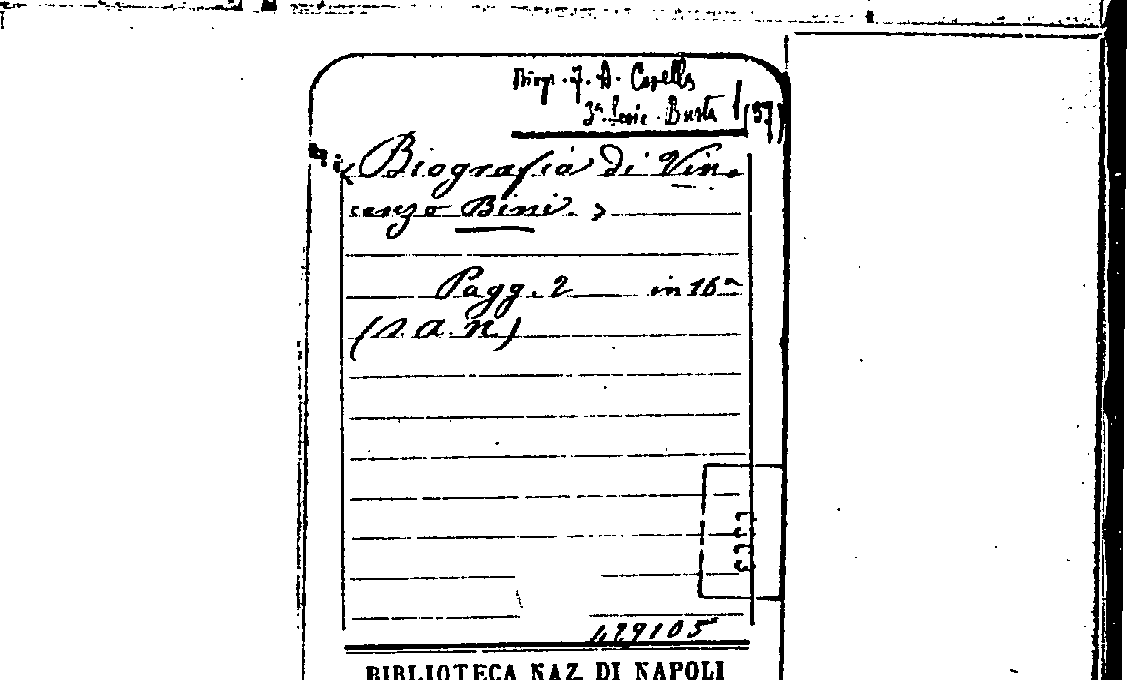 3ª Serie. Busta 1 (37)
« Biografia di Vin-
cenzo Bini. »
Pagg. 2 in 16º
(s. a. n.)
429105
BIBLIOTECA NAZ. DI NAPOLI